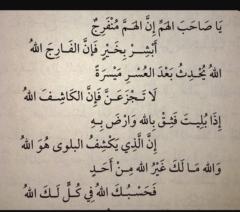 يَا صَاحَبَ الهَمِّ إِنَّ الهَمَّ مُنْفَرِجٌ
أَبْشِرْ بِخَيْرٍ فَإِنَّ الفَارِجَ اللهُ
اللهُ يُحْدِثُ بَعْدَ العُسْرِ مَيْسَرَةً
لَا تَجْزَعَنَّ فَإِنَّ الكَاشِفَ اللهُ
إِذَا بُلِيتَ فَثِقْ بِاللهِ وَارْضَ بِهِ
إِنَّ الَّذِي يَكْشِفُ البلوى هُوَ اللهُ
وَاللهِ مَا لَكَ غَيْرُ اللهِ مِنْ أَحَدٍ
فَحَسْبُكَ اللهُ فِي كُلٍّ لَكَ اللهُ